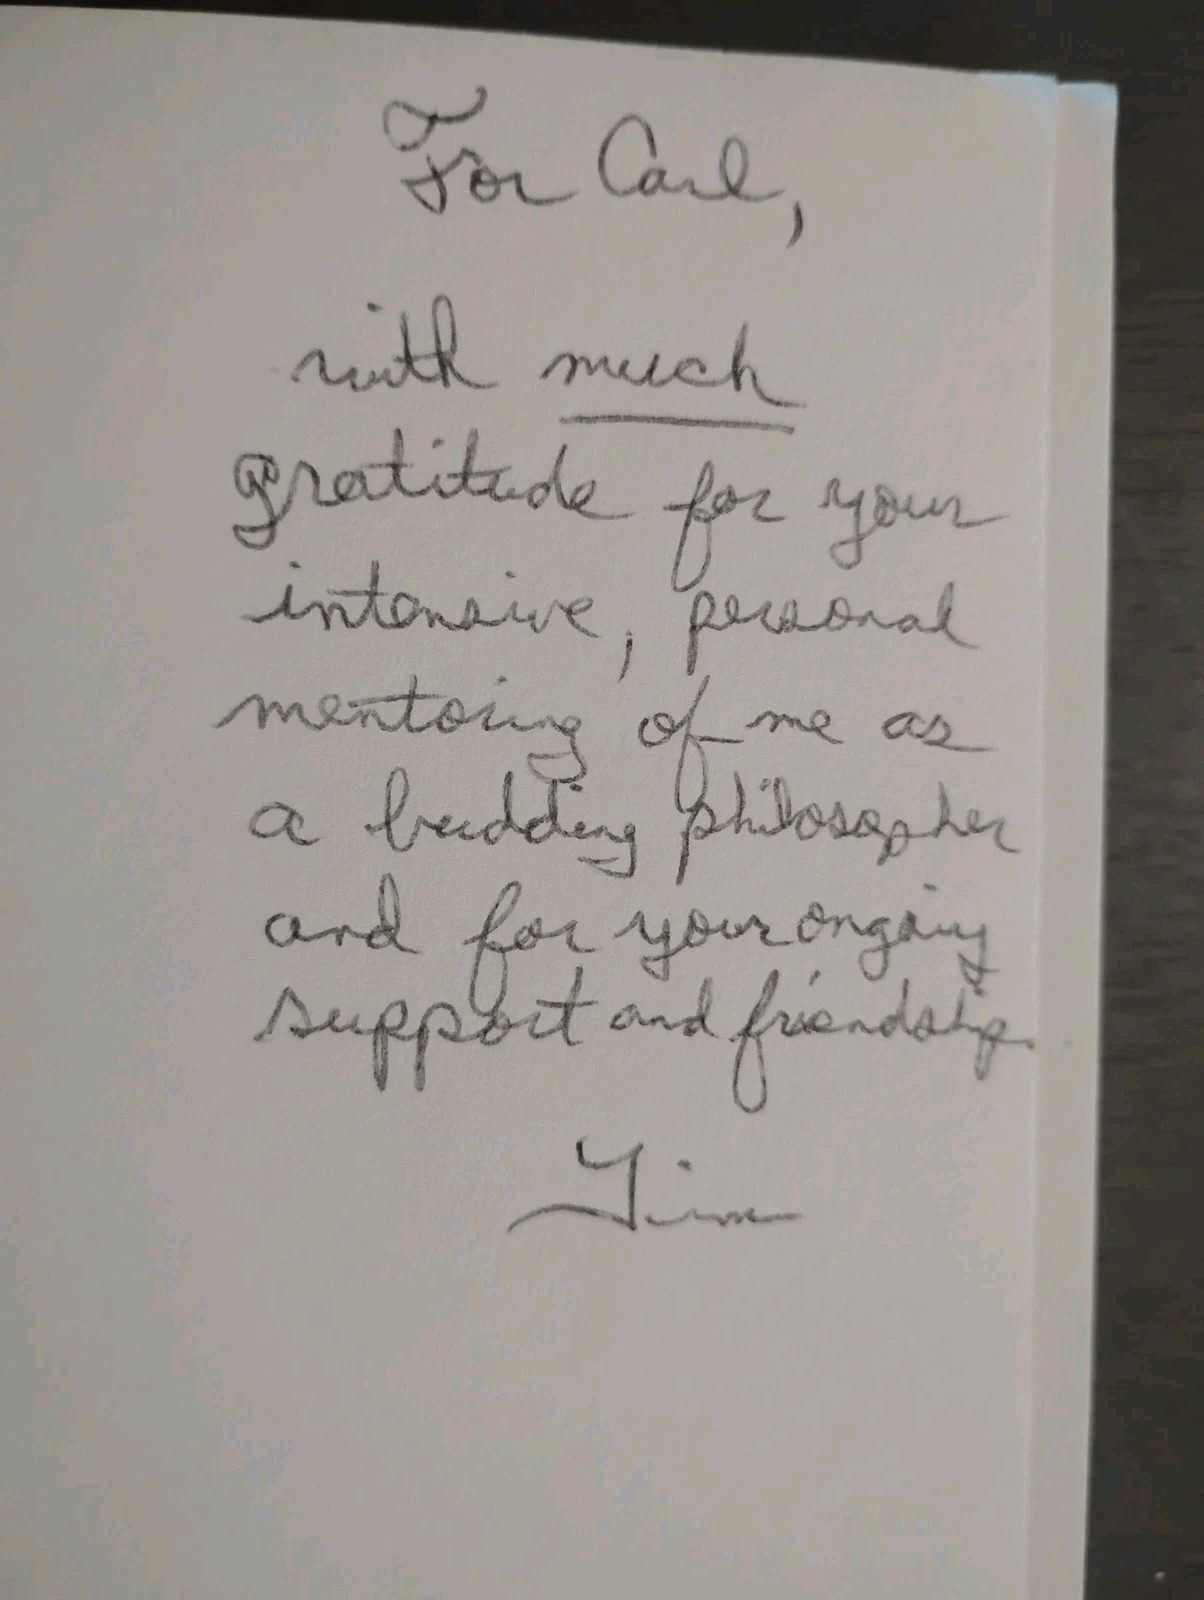 For Carl,
with much
gratitude for your
intensive, personal
mentoring of me as
a budding philosopher
and for your ongoing
support and friendship.
Tim